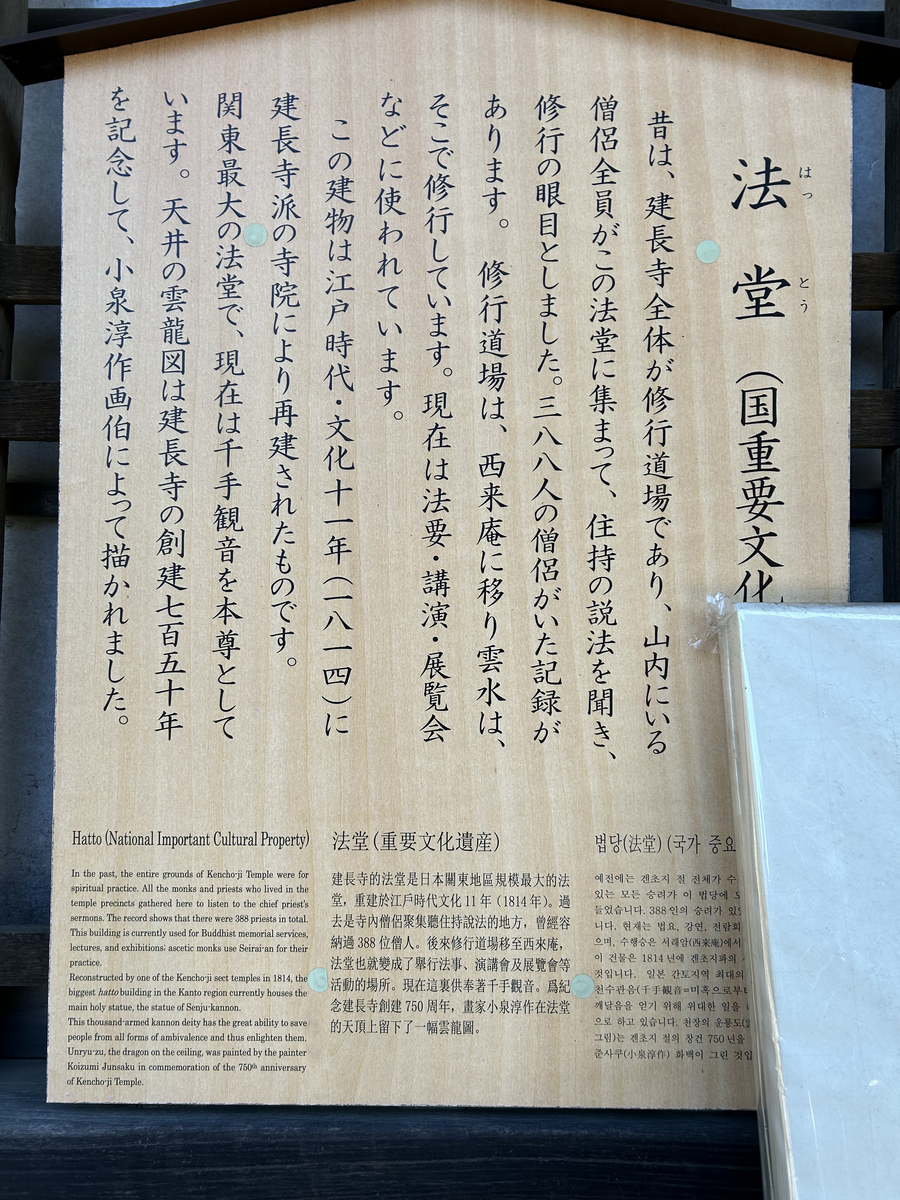 法堂（国重要文化
はっとう
昔は、建長寺全体が修行道場であり、山内にいる
僧侶全員がこの法堂に集まって、住持の説法を聞き、
修行の眼目としました。三八八人の僧侶がいた記録が
あります。　修行道場は、西来庵に移り雲水は、
そこで修行しています。現在は法要・講演・展覧会
などに使われています。
この建物は江戸時代・文化十一年（一八一四）に
建長寺派の寺院により再建されたものです。
関東最大の法堂で、現在は千手観音を本尊として
います。天井の雲龍図は建長寺の創建七百五十年
を記念して、小泉淳作画伯によって描かれました。
Hatto (National Important Cultural Property)
In the past, the entire grounds of Kencho-ji Temple were for
spiritual practice. All the monks and priests who lived in the
temple precincts gathered here to listen to the chief priest's
sermons. The record shows that there were 388 priests in total.
This building is currently used for Buddhist memorial services,
lectures, and exhibitions; ascetic monks use Seirai-an for their
practice.
Reconstructed by one of the Kencho-ji sect temples in 1814, the
biggest hatto building in the Kanto region currently houses the
main holy statue, the statue of Senju-kannon.
This thousand-armed kannon deity has the great ability to save
people from all forms of ambivalence and thus enlighten them.
Unryu-zu, the dragon on the ceiling, was painted by the painter
Koizumi Junsaku in commemoration of the 750th anniversary
of Kencho-ji Temple.
法堂(重要文化遺産)
建長寺的法堂是日本關東地區規模最大的法
堂，重建於江戶時代文化 11 年（1814 年）。過
去是寺內僧侶聚集聽住持說法的地方，曾經容
納過 388 位僧人。後來修行道場移至西來庵，
法堂也就變成了舉行法事、演講會及展覽會等
活動的場所。現在這裏供奉著千手觀音。爲紀
念建長寺創建 750 周年，畫家小泉淳作在法堂
的天頂上留下了一幅雲龍圖。
법당(法堂) (국가 중요
예전에는 겐초지 절 전체가 수
있는 모든 승려가 이 법당에
들었습니다. 388인의 승려가 있
현재는 법요, 강연, 전람회
으며, 수행승은 서래암(西來庵)에서
이 건물은 1814년에 겐초지파의
것입니다. 일본 간토지역 최대의
천수관음(千手観音=미혹으로부터
깨달음을 얻기 위해 위대한 일을
으로 하고 있습니다. 천장의 운룡도(
그림)는 겐초지 절의 창건 750년을
준사쿠(小泉淳作) 화백이 그린 것입